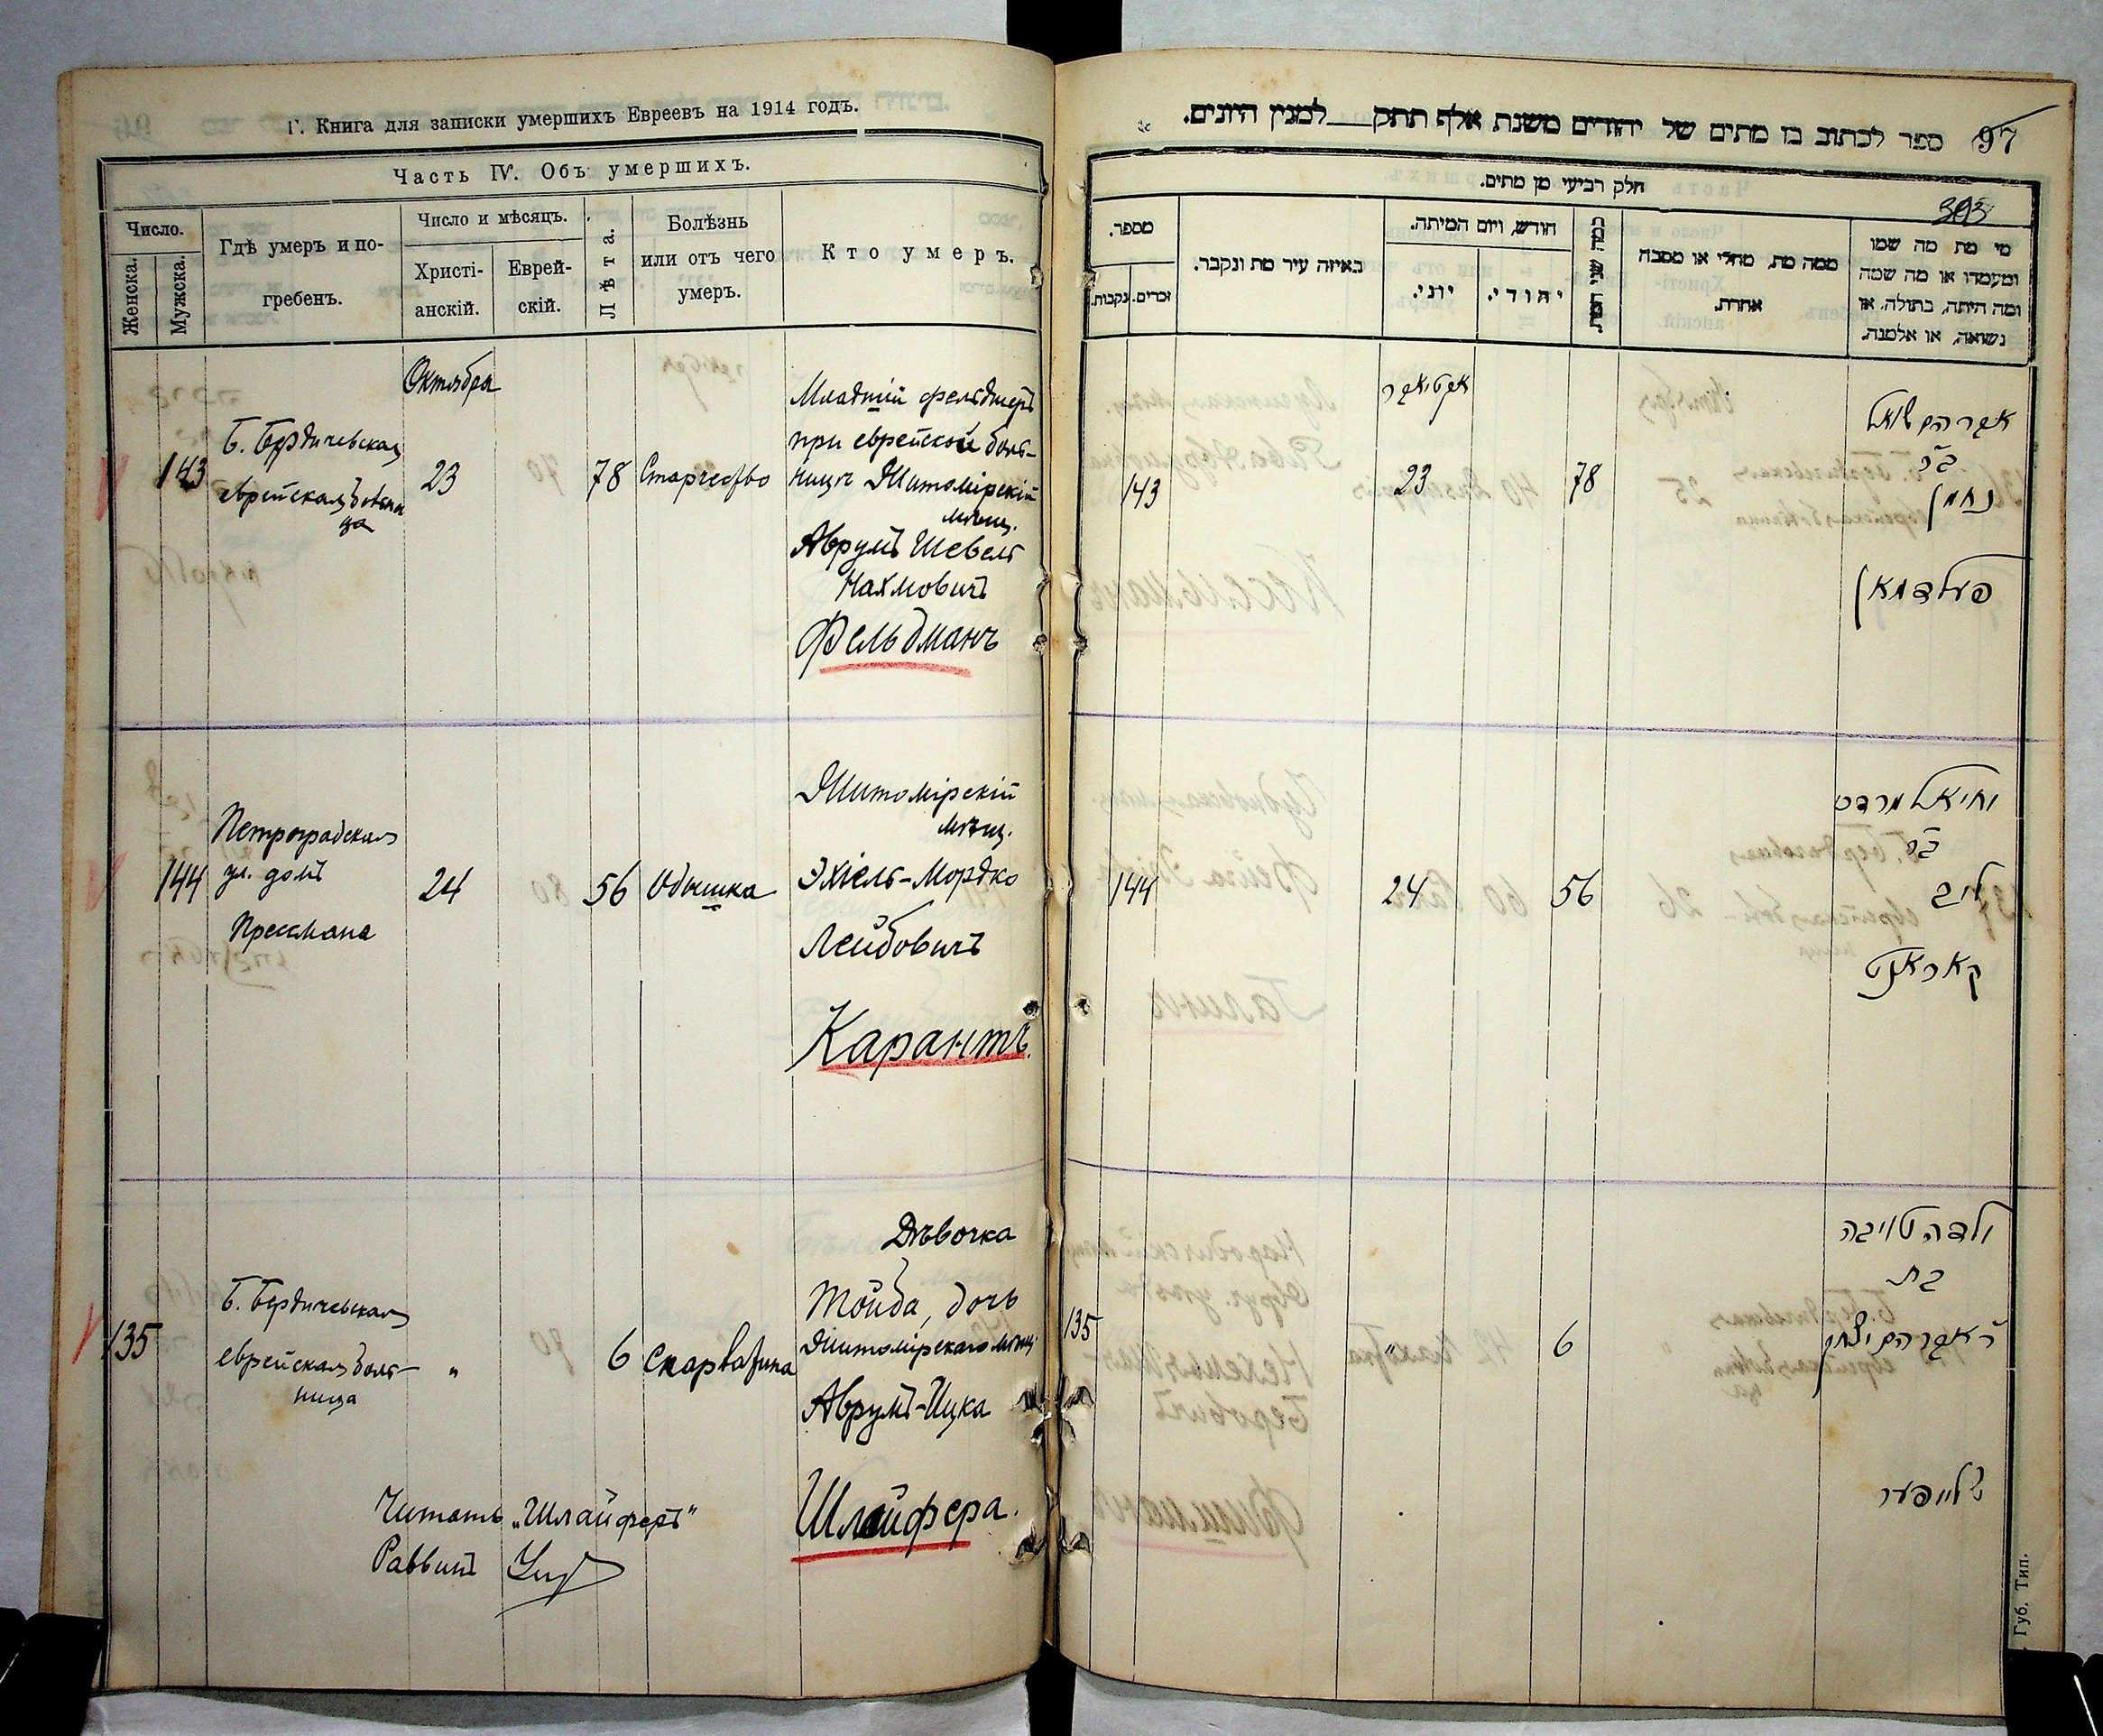 Г. Книга для записки умершихъ Евреевъ на 1914 годъ.
Часть IV. Объ умершихъ.
Число.
Женска.
Мужска.
Гдѣ умеръ и по-
гребенъ.
Число и мѣсяцъ.
Христі-
анскій.
Еврей-
скій.
Лѣта.
Болѣзнь
или отъ чего
умеръ.
Кто умеръ.
Октября
143
Б. Бердичевская
еврейская больни
ца
23
78
Старчество
Младшій фельдшеръ
при еврейской боль-
ницѣ Житомірскій
мѣщ.
Аврумъ Шевель
Нахмовичъ
Фельдманъ
144
Петроградская
ул. домъ
Прессмана
24
56
Одышка
Житомірскій
мѣщ.
Эхіель-Мордко
Лейбовичъ
Карантъ.
135
Б. Бердичевская
еврейская боль-
ница
"
6
Скарлатина
Дѣвочка
Тойба, дочь
Житомірскаго мѣщ.
Аврумъ-Ицка
Шлайфера.
Читать „Шлайферъ"
Раввинъ
97
ספר לכתוב בו מתים של יהודים משנת אלף תתק למנין היונים.
חלק רביעי מן מתים.
393
מספר.
נקבות.
זכרים.
באיזה עיר מת ונקבר.
חודש, ויום המיתה.
יוני.
יהודי.
כמה שני המת.
ממה מת, מחלי או מסבה
אחרת.
מי מת מה שמו
ומעמדו או מה שמה
ומה היתה, בתולה, או
נשואה, או אלמנה.
אקטיאבר
143
23
78
אברהם שואל
ב״ר
נחמן
פעלדמאן
144
24
56
יחיאל מרדכי
ב״ר
ליב
קאראנט
135
"
6
ילדה טויבה
בת
ר׳ אברהם יצחק
שלייפער
Губ. Тип.